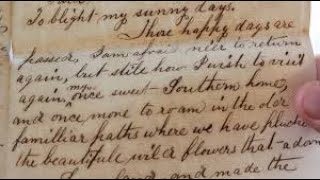 To blight my sunny days.
Those happy days are
passed, I am afraid neer to return
again, but still how I wish to visit
again, my once sweet Southern home,
and once more to roam in the older
familliar paths where we have plucked
the beautifule wild flowers that adorn
and made the